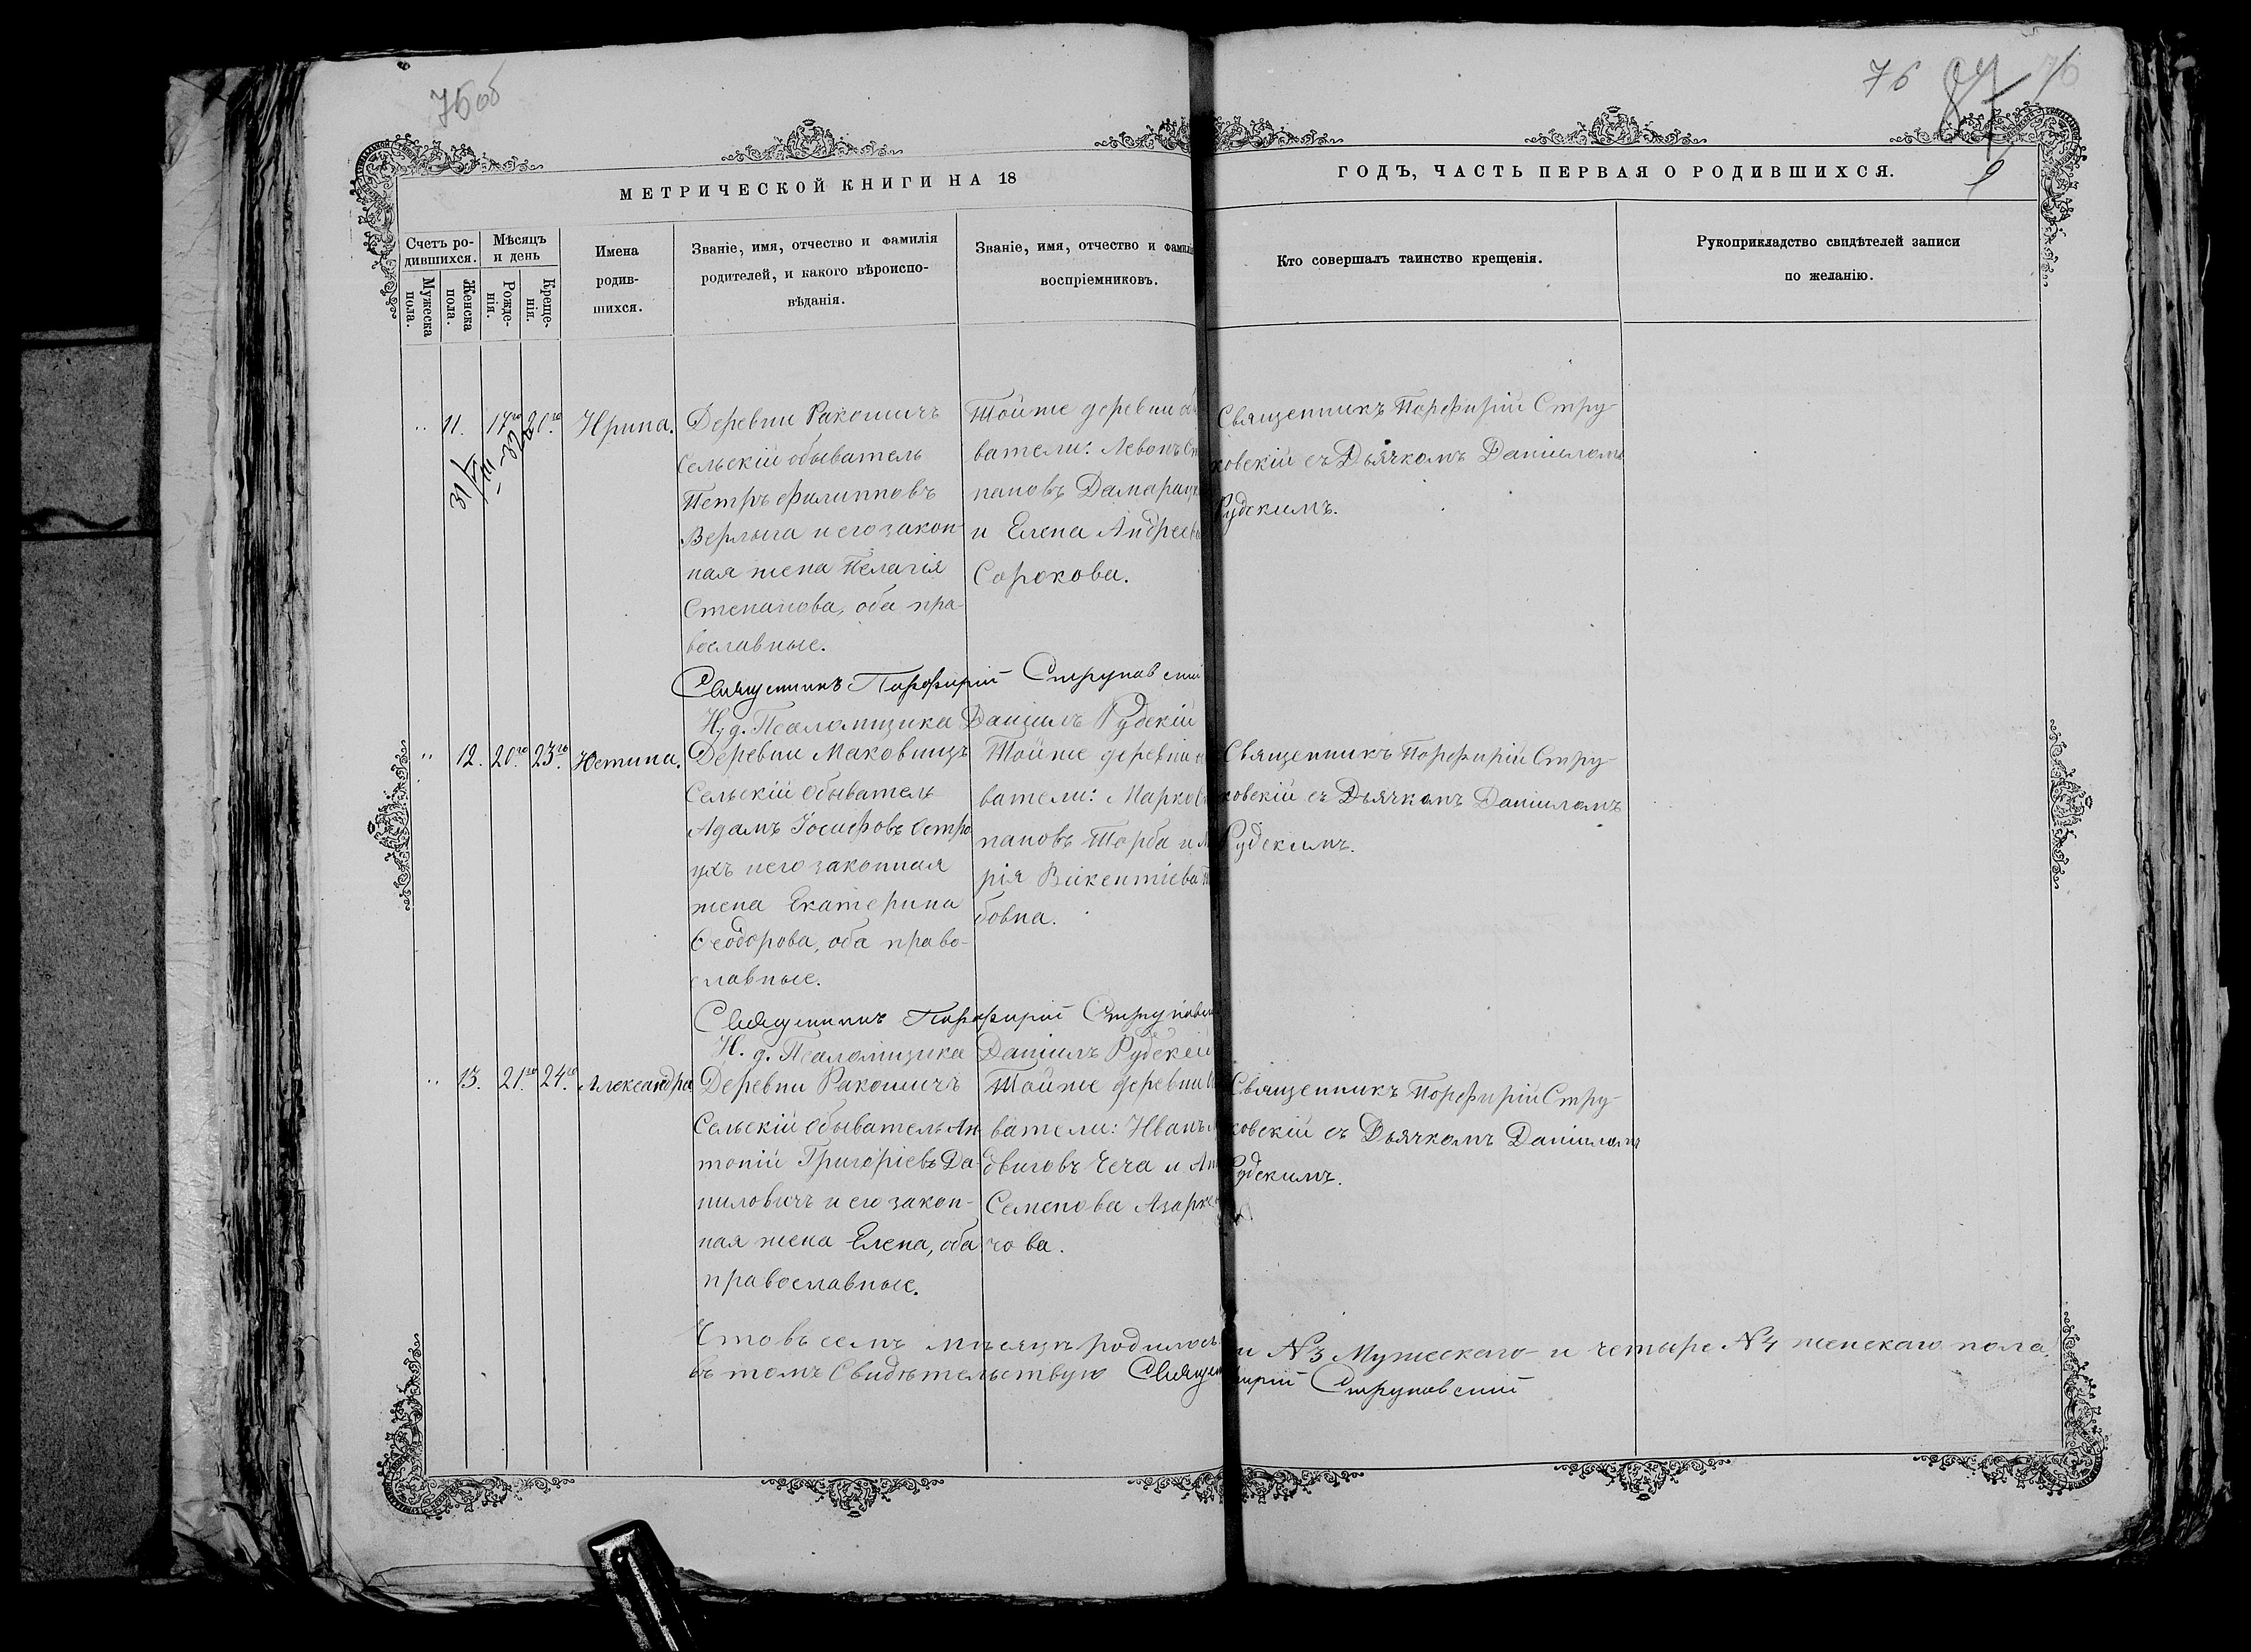 75об
76 87 76
9
МЕТРИЧЕСКОЙ КНИГИ НА 18
ГОДЪ, ЧАСТЬ ПЕРВАЯ О РОДИВШИХСЯ.
Счетъ ро-
дившихся.
Мужеска
пола.
Женска
пола.
Мѣсяцъ
и день
Рожде-
нія.
Креще-
нія.
Имена
родив-
шихся.
Званіе, имя, отчество и фамилія
родителей, и какого вѣроиспо-
вѣданія.
Званіе, имя, отчество и фамилі
воспріемниковъ.
Кто совершалъ таинство крещенія.
Рукоприкладство свидѣтелей записи
по желанію.
11. 17го 20.го Ирина.
Деревни Ракошичъ
Сельскій обыватель
Петръ Филипповъ
Верлыга и его закон-
ная жена Пелагія
Степанова, оба пра-
вославные.
Тойже деревни
ватели: Левонъ
пановъ
и Елена Андреев
Сорокова.
Священникъ Порфирій Стру-
ковскій съ Дьячкомъ Даніиломъ
Рудскимъ.
Священникъ Порфирій Струковскій
И. д. Псаломщика Даніилъ Рудскій
12. 20.го 23.го Юстина.
Деревни Маковищъ
Сельскій Обыватель
Адамъ Іосифовъ Остро
ухъ и его законная
жена Екатерина
Ѳеодорова, оба право-
славные.
Тойже деревни
ватели: Марко
пановъ Торба и
рія Викентіева
бовна.
Священникъ Порфирій Стру-
ковскій съ Дьячкомъ Даніиломъ
Рудскимъ.
Священникъ Порфирій Струковскій
И. д. Псаломщика Даніилъ Рудскій
13. 21.го 24.го Александра
Деревни Ракошичъ
Сельскій Обыватель Ан
тоній Григоріевъ Да-
ниловичъ и его закон-
ная жена Елена, оба
православные.
Тойже деревни
ватели: Иванъ
довиговъ Чеча и
Семенова Азарке
чова.
Священникъ Порфирій Стру-
ковскій съ Дьячкомъ Даніиломъ
Рудскимъ.
Что въ семъ мѣсяцѣ родилось и №3 Мужескаго и четыре №4 женскаго пола
въ томъ Свидѣтельствую Священ ирій Струковскій